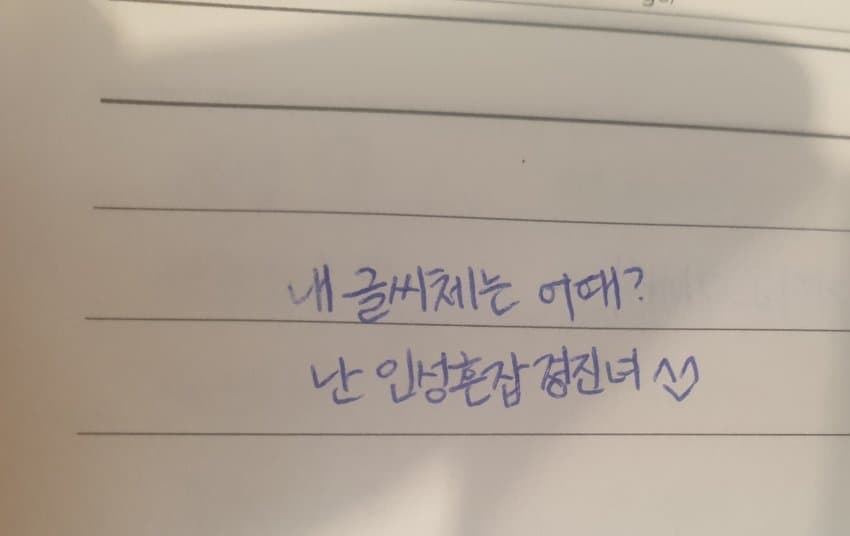 내 글씨체는 어때?
난 인성혼잡 경진녀 ^^